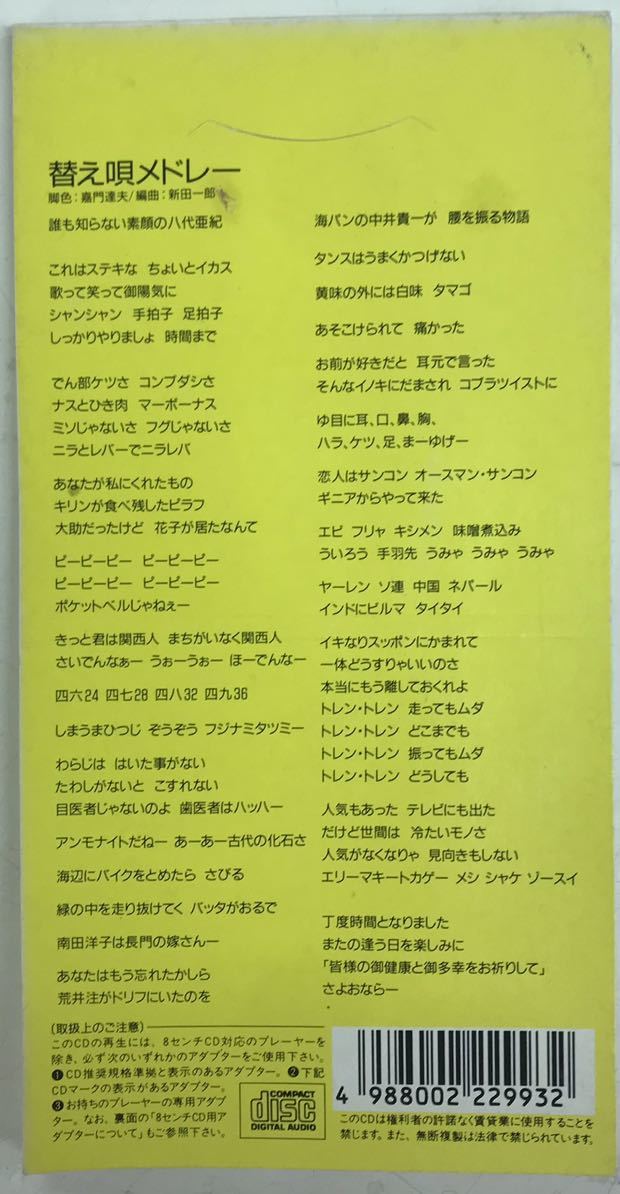 替え唄メドレー
脚色:嘉門達夫/編曲:新田一郎
誰も知らない素顔の八代亜紀
これはステキな ちょいとイカス
歌って笑って御陽気に
シャンシャン 手拍子 足拍子
しっかりやりましょ 時間まで
でん部ケツさ コンブダシさ
ナスとひき肉 マーボーナス
ミソじゃないさ フグじゃないさ
ニラとレバーでニラレバ
あなたが私にくれたもの
キリンが食べ残したピラフ
大助だったけど 花子が居たなんて
ピーピーピー ピーピーピー
ピーピーピー ピーピーピー
ポケットベルじゃねぇー
きっと君は関西人 まちがいなく関西人
さいでんなぁー うぉーうぉー ほーでんなー
四六24 四七28 四八32 四九36
しまうまひつじ ぞうぞう フジナミタツミー
わらじは はいた事がない
たわしがないと こすれない
目医者じゃないのよ 歯医者はハッハー
アンモナイトだねー あーあー古代の化石さ
海辺にバイクをとめたら さびる
緑の中を走り抜けてく バッタがおるで
南田洋子は長門の嫁さんー
あなたはもう忘れたかしら
荒井注がドリフにいたのを
海パンの中井貴一が 腰を振る物語
タンスはうまくかつげない
黄味の外には白味 タマゴ
あそこけられて 痛かった
お前が好きだと 耳元で言った
そんなイノキにだまされ コブラツイストに
ゆ目に耳、口、鼻、胸、
ハラ、ケツ、足、まーゆげー
恋人はサンコン オースマン・サンコン
ギニアからやって来た
エビ フリャ キシメン 味噌煮込み
ういろう 手羽先 うみゃ うみゃ うみゃ
ヤーレン ソ連 中国 ネパール
インドにビルマ タイタイ
イキなりスッポンにかまれて
一体どうすりゃいいのさ
本当にもう離しておくれよ
トレン・トレン 走ってもムダ
トレン・トレン どこまでも
トレン・トレン 振ってもムダ
トレン・トレン どうしても
人気もあった テレビにも出た
だけど世間は 冷たいモノさ
人気がなくなりゃ 見向きもしない
エリーマキートカゲー メシ シャケ ゾースイ
丁度時間となりました
またの逢う日を楽しみに
「皆様の御健康と御多幸をお祈りして」
さよおならー
(取扱上のご注意)
このCDの再生には、8センチCD対応のプレーヤーを
除き、必ず次のいずれかのアダプターをご使用下さい。
❶CD推奨規格準拠と表示のあるアダプター。❷下記
CDマークの表示があるアダプター。
❸お持ちのプレーヤーの専用アダプ
ター。なお、裏面の「8センチCD用ア
ダプターについて」もご参照下さい。
COMPACT
disc
DIGITAL AUDIO
4 988002 229932
このCDは権利者の許諾なく賃貸業に使用することを
禁じます。また、無断複製は法律で禁じられています。